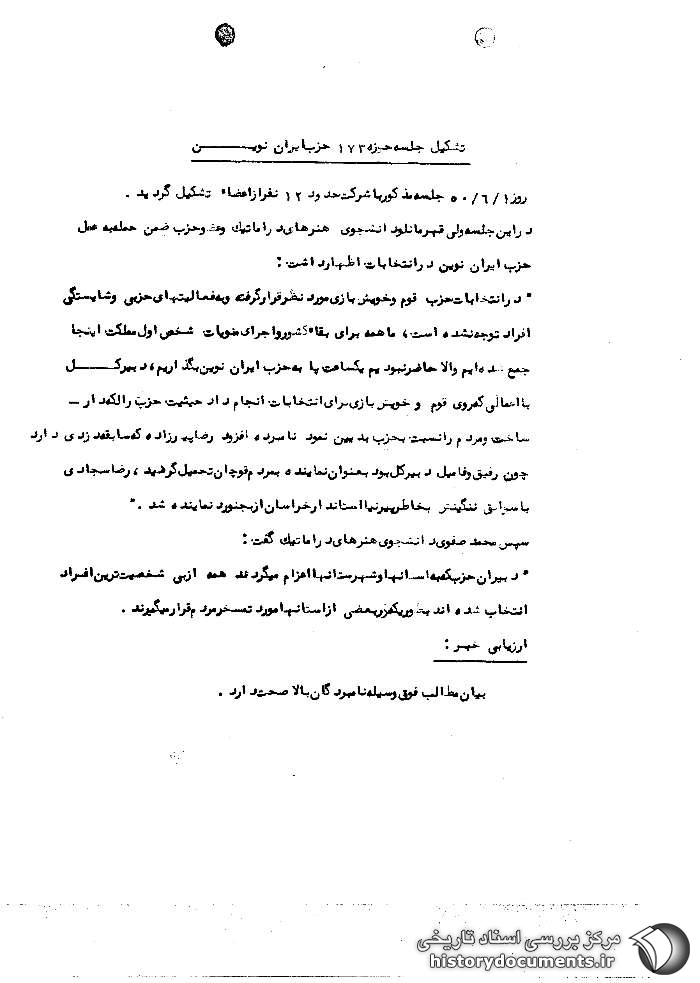 تشکیل جلسه حوزه ۱۷۳ حزب ایران نویـــــن
روز ۵۰/۶/۱ جلسه مذکور با شرکت حدود ۱۲ نفر از اعضاء تشکیل گردید .
در این جلسه ولی قهرمانلو دانشجوی هنرهای دراماتیک وعضو حزب ضمن حمله به عمل
حزب ایران نوین در انتخابات اظهار داشت :
" در انتخابات حزب قوم وخویش بازی مورد نظر قرار گرفته وبه فعالیتهای حزبی وشایستگی
افراد توجه نشده است ، ما همه برای بقاء کشور واجرای منویات شخص اول مملکت اینجا
جمع شده ایم والا حاضر نبودیم یکساعت پا به حزب ایران نوین بگذاریم ، دبیرکـــــل
با اعمالی که روی قوم و خویش بازی برای انتخابات انجام داد حیثیت حزب را لکه دار ـ
ساخت ومردم را نسبت بحزب بدبین نمود نامبرده افزود رضا پیرزاده که سابقه دزدی دارد
چون رفیق وفامیل دبیرکل بود بعنوان نماینده بمردم قوچان تحمیل گردید ، رضا سجادی
با سوابق ننگینش بخاطر پیرنیا استاندار خراسان از بجنورد نماینده شد . "
سپس محمد صفوی دانشجوی هنرهای دراماتیک گفت :
" دبیران حزب که به استانها وشهرستانها اعزام میگردند همه از بی شخصیت ترین افراد
انتخاب شده اند بطوریکه در بعضی از استانها مورد تمسخر مردم قرار میگیرند .
ارزیابی خبر :
بیان مطالب فوق وسیله نامبردگان بالا صحت دارد .
مرکز بررسی اسناد تاریخی
historydocuments.ir